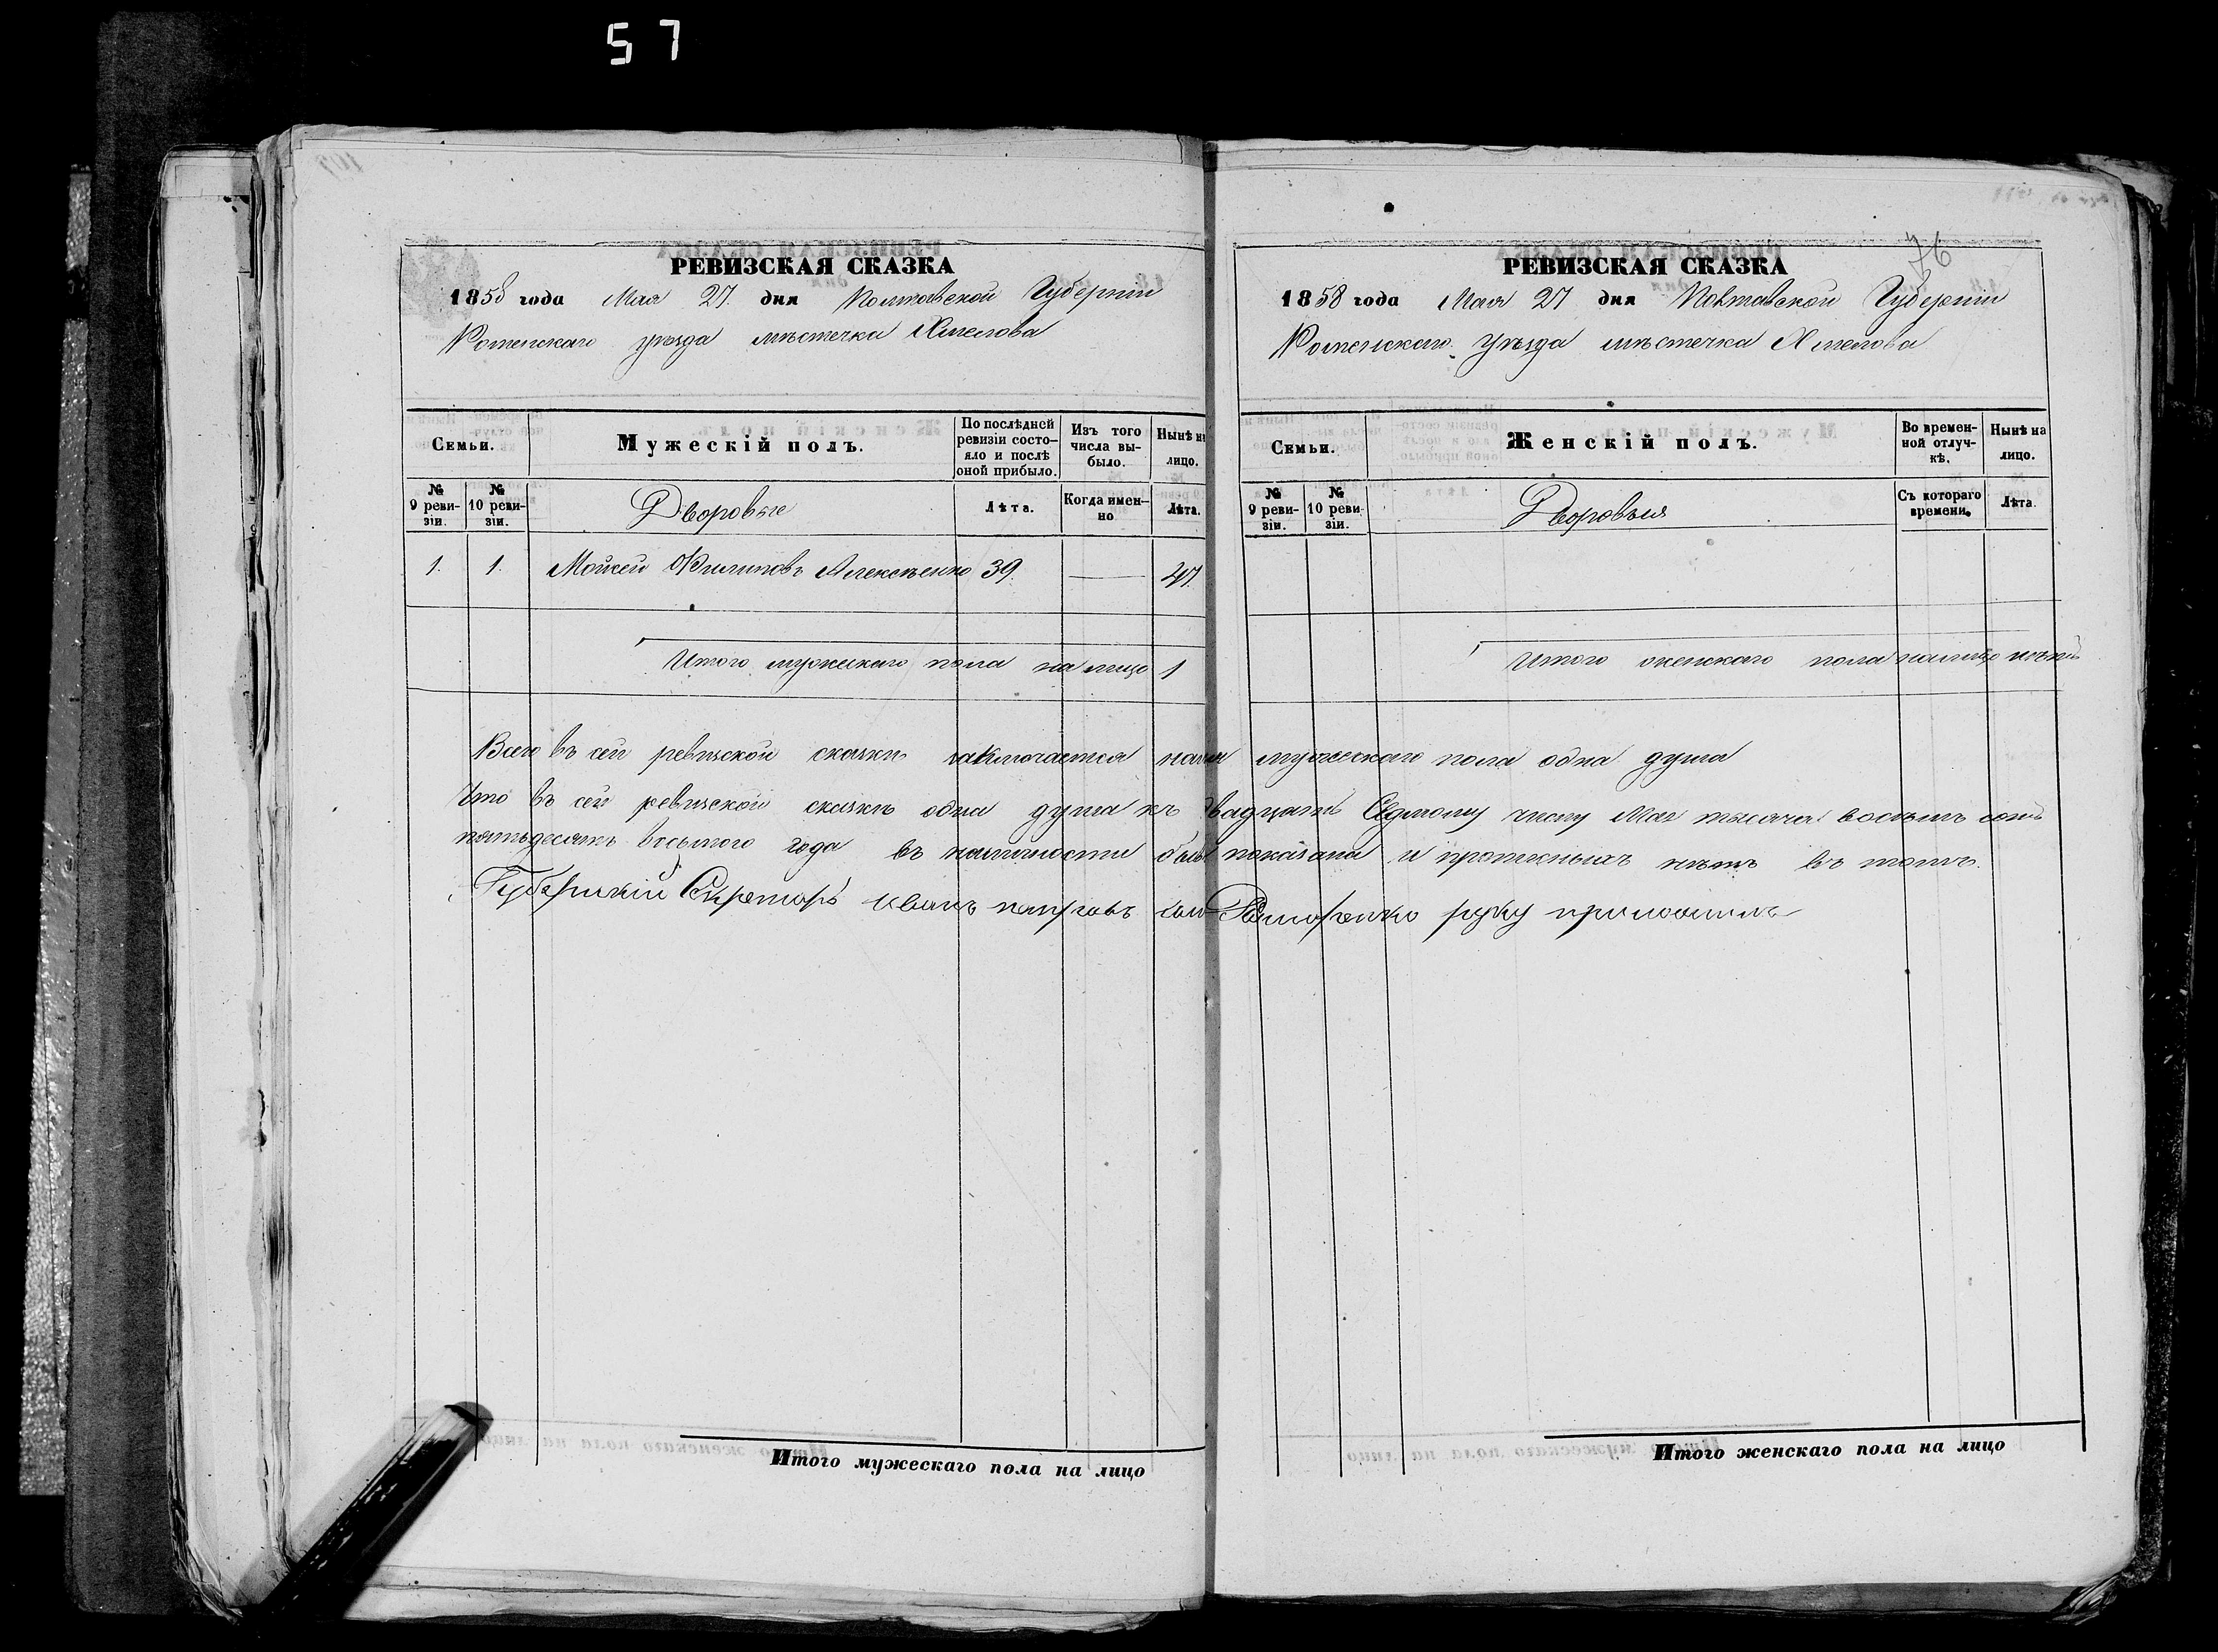 57
76
РЕВИЗСКАЯ СКАЗКА
1858 года Мая 27. дня Полтавской Губерніи
Роменскаго уѣзда мѣстечка Хмелова
Семьи.
Мужескій полъ.
По послѣдней ревизіи состояло и послѣ оной прибыло.
Изъ того числа выбыло.
Нынѣ на лицо.
№ 9 ревизіи.
№ 10 ревизіи.
Дворовые
Лѣта.
Когда именно
Лѣта.
1. 1. Мойсей Филиповъ Алексѣенко 39. — 47.
Итого мужескаго пола на лицо 1
РЕВИЗСКАЯ СКАЗКА
1858 года Мая 27 дня Полтавской Губерніи
Роменскаго уѣзда мѣстечка Хмелова
Семьи.
Женскій полъ.
Во временной отлучкѣ.
Нынѣ на лицо.
№ 9 ревизіи.
№ 10 ревизіи.
Дворовыя
Съ котораго времени.
Лѣта.
Итого женскаго пола налицо нѣтъ
Всего въ сей ревизской сказкѣ заключается мужескаго пола одна душа
Что въ сей ревизской сказкѣ одна душа къ двадцать Седмому числу Мая тысяча восемь сотъ
пятьдесятъ восьмого года въ наличности показана и прописныхъ нѣтъ въ томъ
Губернскій Секретарь Иванъ сынъ руку приложилъ
Итого мужескаго пола на лицо
Итого женскаго пола на лицо